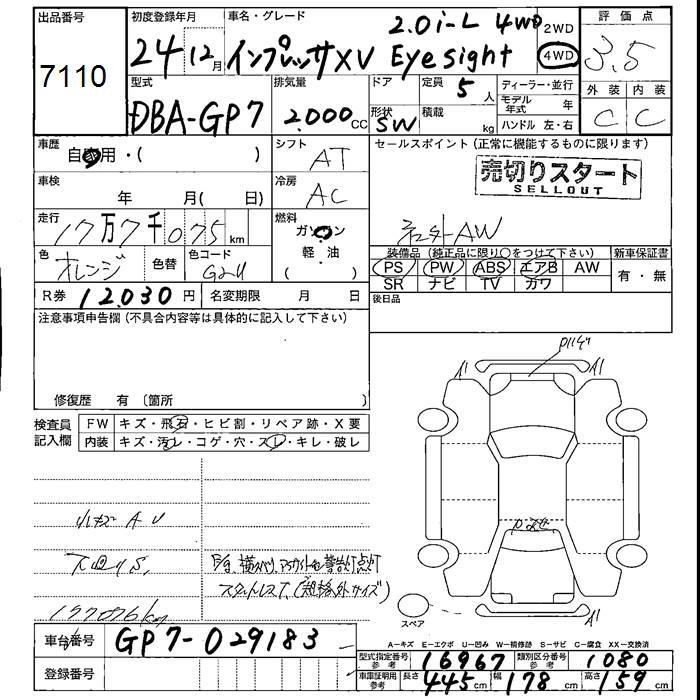 出品番号
7110
初度登録年月
24年12月
車名・グレード
2.0i-L 4WD
インプレッサXV EyeSight
2WD
4WD
評価点
3.5
外装 内装
C C
型式
DBA-GP7
排気量
2.000cc
ドア
5
定員
人
形状
SW
積載
kg
ディーラー・並行
モデル年式 年
ハンドル 左・右
車歴
自家用・( )
シフト
AT
車検
年 月( 日)
冷房
AC
走行
17万7千075km
燃料
ガソリン
軽・油
( )
色
オレンジ
色替
色コード
G24
R券 12.030円
名変期限 月 日
セールスポイント(正常に機能するものに限ります)
売切りスタート
SELLOUT
社外AW
装備品(純正品に限り○をつけて下さい)
PS PW ABS エアB AW
SR ナビ TV カワ
新車保証書
有・無
後日品
注意事項申告欄(不具合内容等は具体的に記入して下さい)
修復歴 有 〔箇所 〕
検査員記入欄
FW キズ・飛石・ヒビ割・リペア跡・X要
内装 キズ・汚レ・コゲ・穴・スレ・キレ・破レ
小キズ A U
下回りS,
177076km
スタッドレスT,(規格外サイズ)
A1
A1
A1
スペア
車台番号 GP7-029183
登録番号
A-キズ E-エクボ U-凹み W-補修跡 S-サビ C-腐食 XX-交換済
型式指定番号 参考 16967
類別区分番号 参考 1080
車庫証明用 参考 長さ 445cm 幅 178cm 高さ 159cm